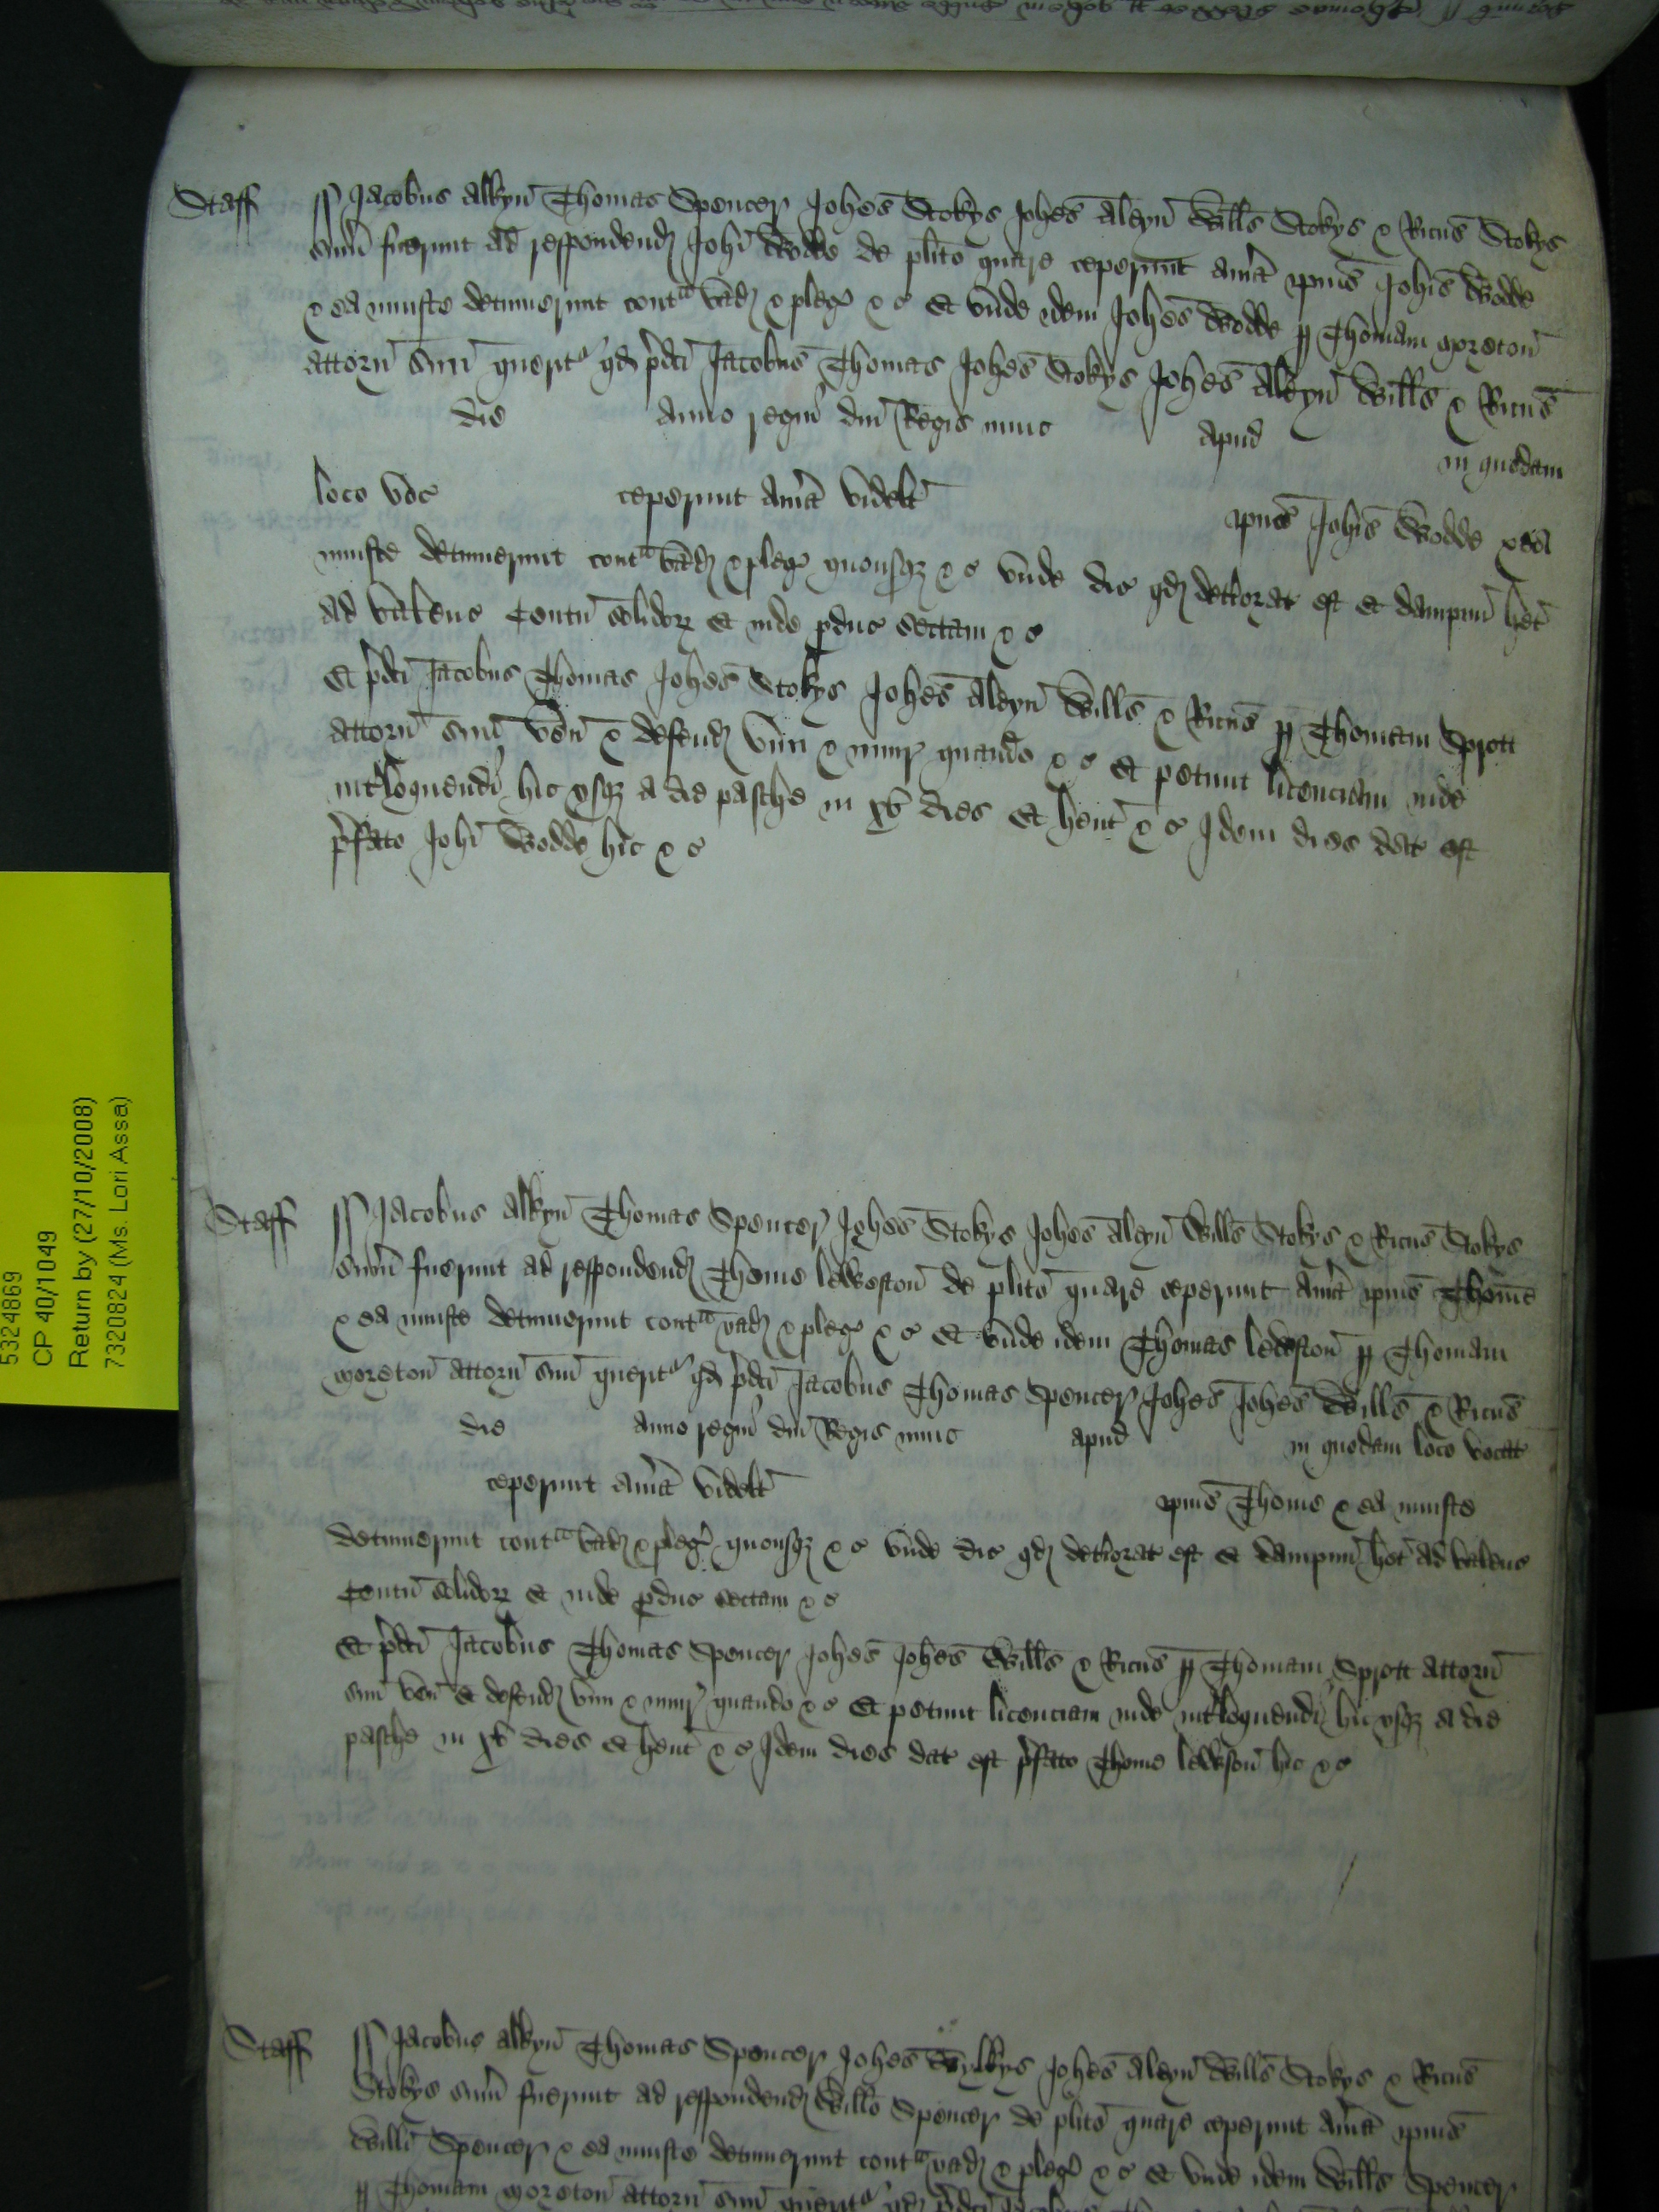 Staff
Jacobus Alkyn Thomas Spencer Johes Stokys Johes Aleyn Wills Stokys & Ricus Stokys
sum fuerunt ad respondend Johi Wodde de plito quare ceperunt avia ipius Johis Wodde
& ea iniuste detinuerunt contra vad & pleg &c Et unde idem Johes Wodde p Thomam Moreton
attorn suu querit qd pdci Jacobus Thomas Johes Stokys Johes Aleyn Wills & Ricus
die anno regni dni Regis nunc apud in quodam
loco voc ceperunt avia videlt ipius Johis Wodde & ea
iniuste detinuerunt contra vad & pleg quousq &c unde dic qd deteriorat est et dampnu het
ad valenc Centu solidor Et inde pduc sectam &c
Et pdci Jacobus Thomas Johes Stokys Johes Aleyn Wills & Ricus p Thomam Sprott
attorn suu ven & defend vim & iniur quando &c Et petunt licenciam inde
intloquendi hic usq a die pasche in xv dies Et hent &c Idem dies dat est
pfato Johi Wodde hic &c
Staff
Jacobus Alkyn Thomas Spencer Johes Stokys Johes Aleyn Wills Stokys & Ricus Stokys
sum fuerunt ad respondend Thome de plito quare ceperunt avia ipius Thome
& ea iniuste detinuerunt contra vad & pleg &c Et unde idem Thomas p Thomam
Moreton attorn suu querit qd pdci Jacobus Thomas Spencer Johes Johes Wills & Ricus
die anno regni dni Regis nunc apud in quodam loco vocat
ceperunt avia videlt ipius Thome & ea iniuste
detinuerunt contra vad & pleg quousq &c unde dic qd deteriorat est et dampnu het ad valenc
Centu solidor Et inde pduc sectam &c
Et pdci Jacobus Thomas Spencer Johes Johes Wills & Ricus p Thomam Sprott attorn
suu ven & defend vim & iniur quando &c Et petunt licenciam inde intloquendi hic usq a die
pasche in xv dies Et hent &c Idem dies dat est pfato Thome hic &c
Staff
Jacobus Alkyn Thomas Spencer Johes Johes Aleyn Wills Stokys & Ricus
Stokys sum fuerunt ad respondend Willo Spencer de plito quare ceperunt avia ipius
Willi Spencer & ea iniuste detinuerunt contra vad & pleg &c Et unde idem Wills Spencer
p Thomam Moreton attorn suu querit qd pdci Jacobus
53248869
CP 40/1049
Return by (27/10/2008)
7320824 (Ms. Lori Assa)